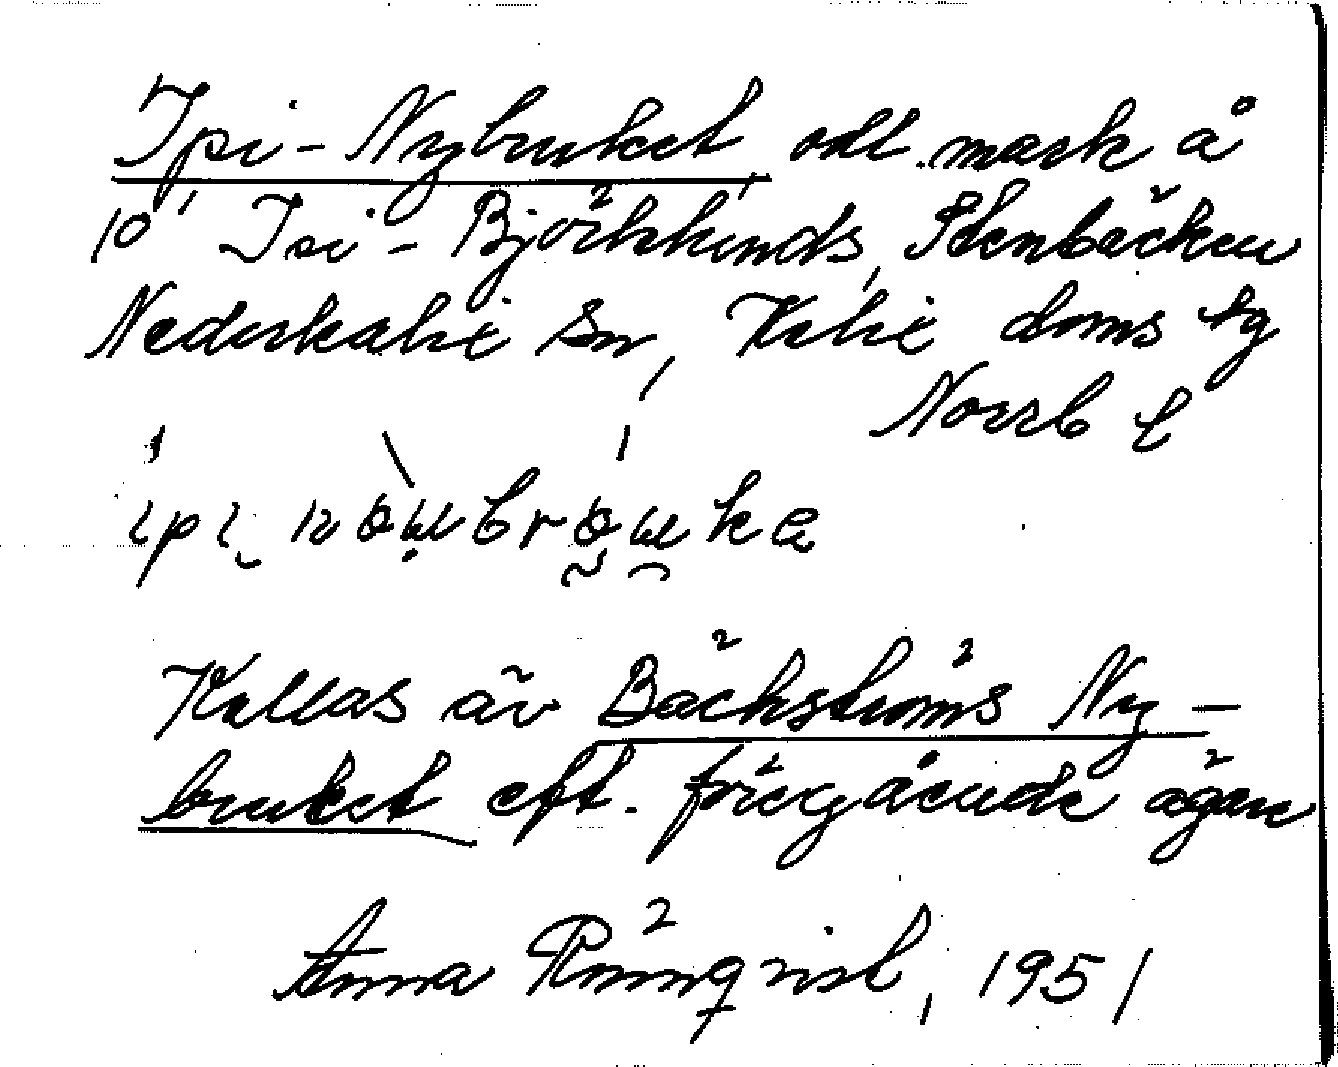 Ipi-Nybruket odl. mark å
10' Isi-Björklunds, Stenbäcken
Nederkalix sn, Kalix doms tg
Norrb l
Kallas äv Bäckströms Ny-
bruket eft. föregående ägare
Anna Rönnqvist, 1951